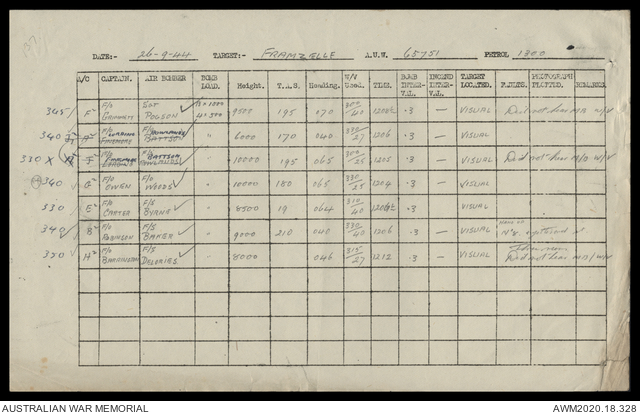 DATE:- 26-9-44 TARGET:- FRAMZELLE A.U.W. 65751 PETROL 1300
A/C CAPTAIN. AIR BOMBER BOMB LOAD. Height. T.A.S. Heading. W/V Used. TIME. BOMB INTER- VAL. INCEND INTER- VAL. TARGET LOCATED. PHOTOGRAPH PLOTTED. REMARKS.
345 F² F/O SGT POLSON 9500 195 070 300/40 .3 — VISUAL Did not hear M.B. W/V
340 F/O 6000 170 040 330/25 1206 .3 — VISUAL
320 X F/O BATTSON 10000 195 065 300/25 1205 .3 — VISUAL Did not hear M/B W/V
340 G² F/O OWEN F/O WOODS " 10000 180 065 330/25 1204 .3 — VISUAL
330 E² F/O CARTER F/S BYRNE " 8500 19 064 310/40 .3 VISUAL
340 B² F/O ROBINSON F/S BAKER " 9000 210 040 330/40 1206 .3 VISUAL
350 H² F/O F/S DELORIES " 8000 046 315/27 1212 .3 — VISUAL Did not hear M/B/ W/V
AUSTRALIAN WAR MEMORIAL AWM2020.18.328